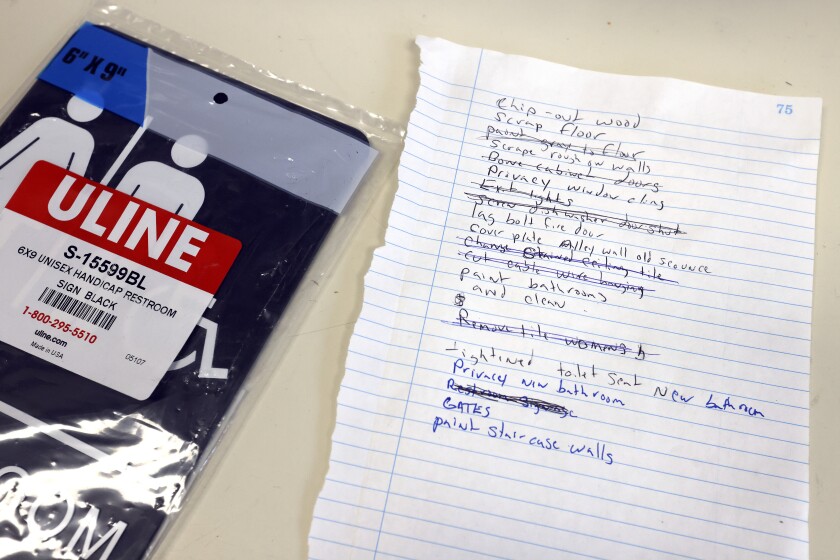 6" X 9"
ULINE
S-15599BL
6X9 UNISEX HANDICAP RESTROOM
SIGN BLACK
1-800-295-5510
uline.com
Made in USA
05107
OOM
75
Chip-out wood
Scrap floor
paint gray to floor
Scrape rough gw walls
Bowe cabinet doors
Privacy window cling
Exit lights
Screw dishwasher door shut
Lag bolt fire door
Cover plate Alley wall old scounce
Change Stained Ceiling tile
Cut cable wire hanging
paint bathrooms
and clean
Remove tile womens b
tightined toilet seat New bathroom
Privacy New bathroom
Restroom Signage
GATES
paint staircase walls